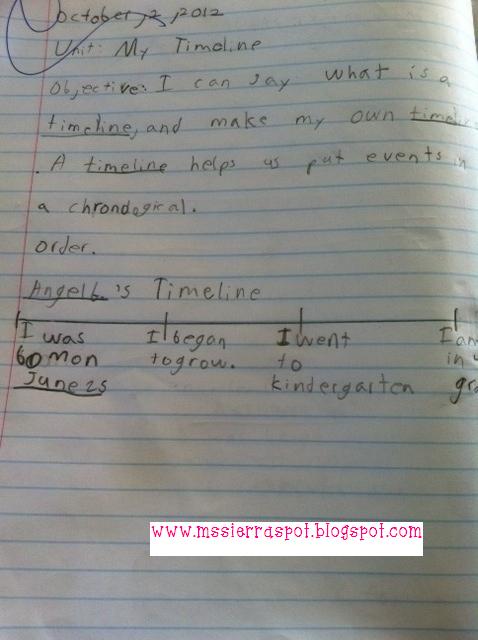 October, 2, 2012
Unit: My Timeline
Objective: I can say what is a
timeline, and make my own timeli
. A timeline helps us put events in
a chrondogical.
order.
Angel L.'s Timeline
I was I began I went I am
bomon to grow. to in
June 25 kindergarten gr
www.mssierraspot.blogspot.com